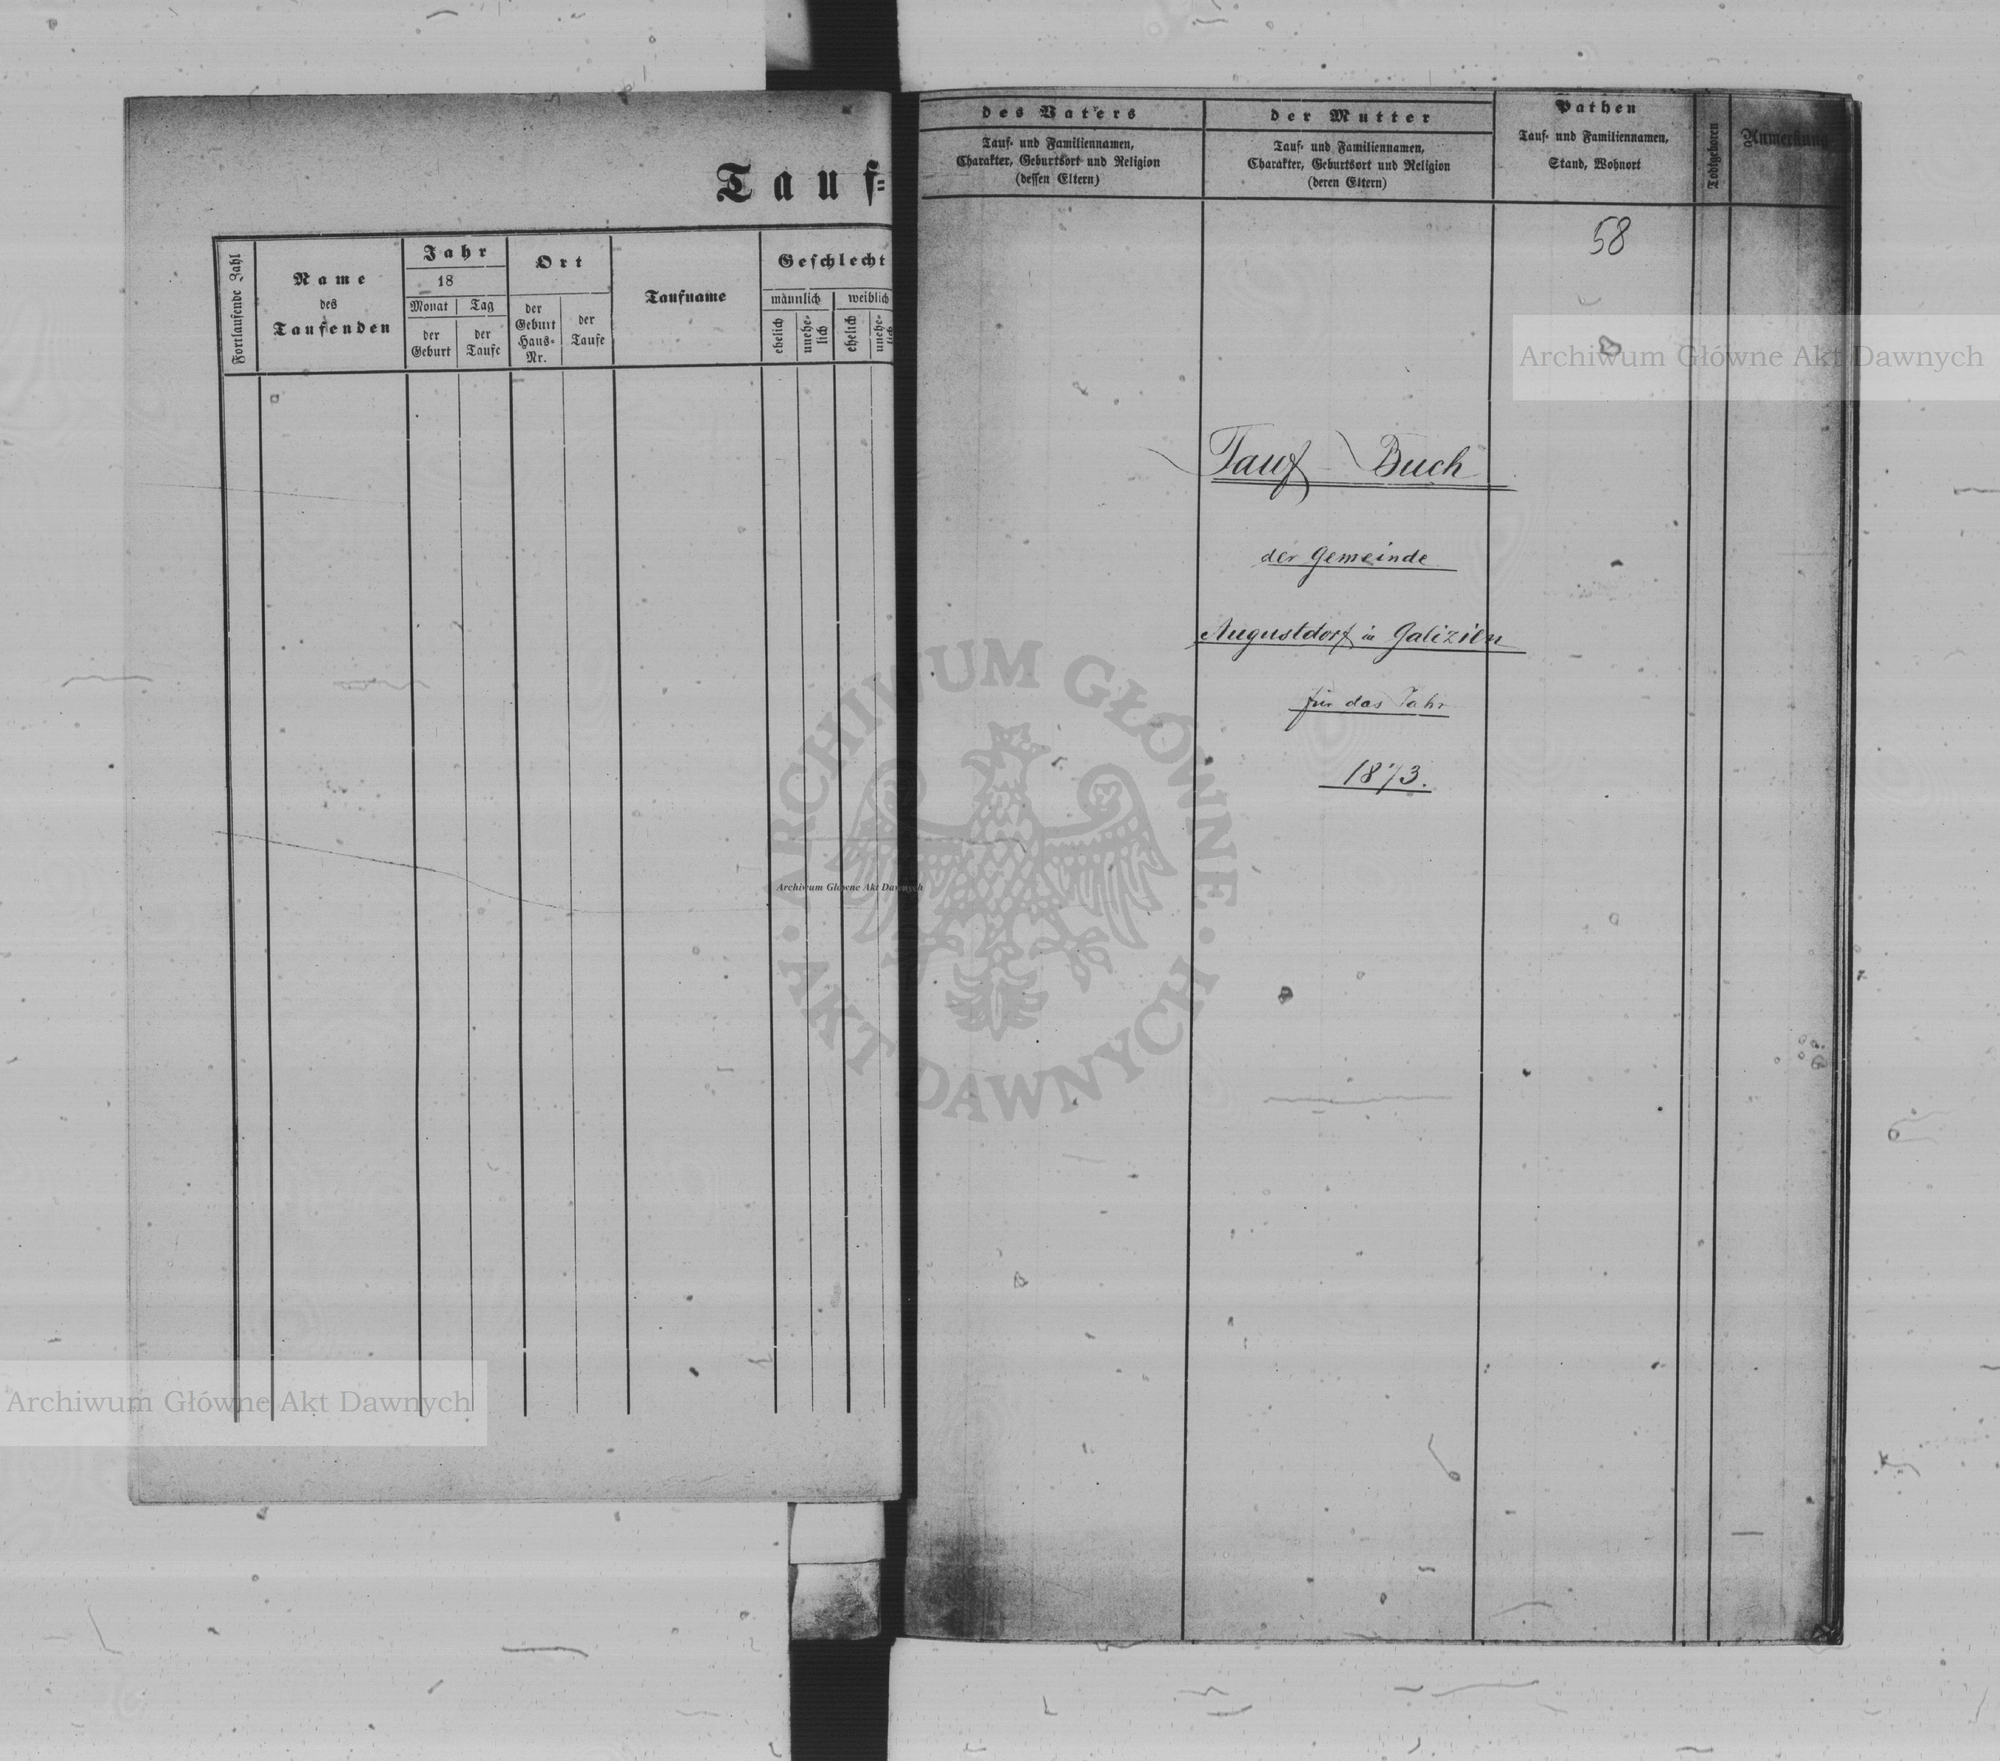 Tauf-
Fortlaufende Zahl
Name
des
Taufenden
Jahr
18
Monat
Tag
der
Geburt
der
Taufe
Ort
der
Geburt
Haus-
Nr.
der
Taufe
Taufname
Geschlecht
männlich
weiblich
ehelich
unehe-
lich
ehelich
unehe-
lich
des Vaters
Tauf- und Familiennamen,
Charakter, Geburtsort und Religion
(dessen Eltern)
der Mutter
Tauf- und Familiennamen,
Charakter, Geburtsort und Religion
(deren Eltern)
Pathen
Tauf- und Familiennamen,
Stand, Wohnort
Todtgeboren
Anmerkung
58
Tauf-Buch
der Gemeinde
Augustdorf in Galizien
für das Jahr
1873.
Archiwum Główne Akt Dawnych
ARCHIWUM GŁÓWNE
AKT DAWNYCH
Archiwum Główne Akt Dawnych
Archiwum Główne Akt Dawnych